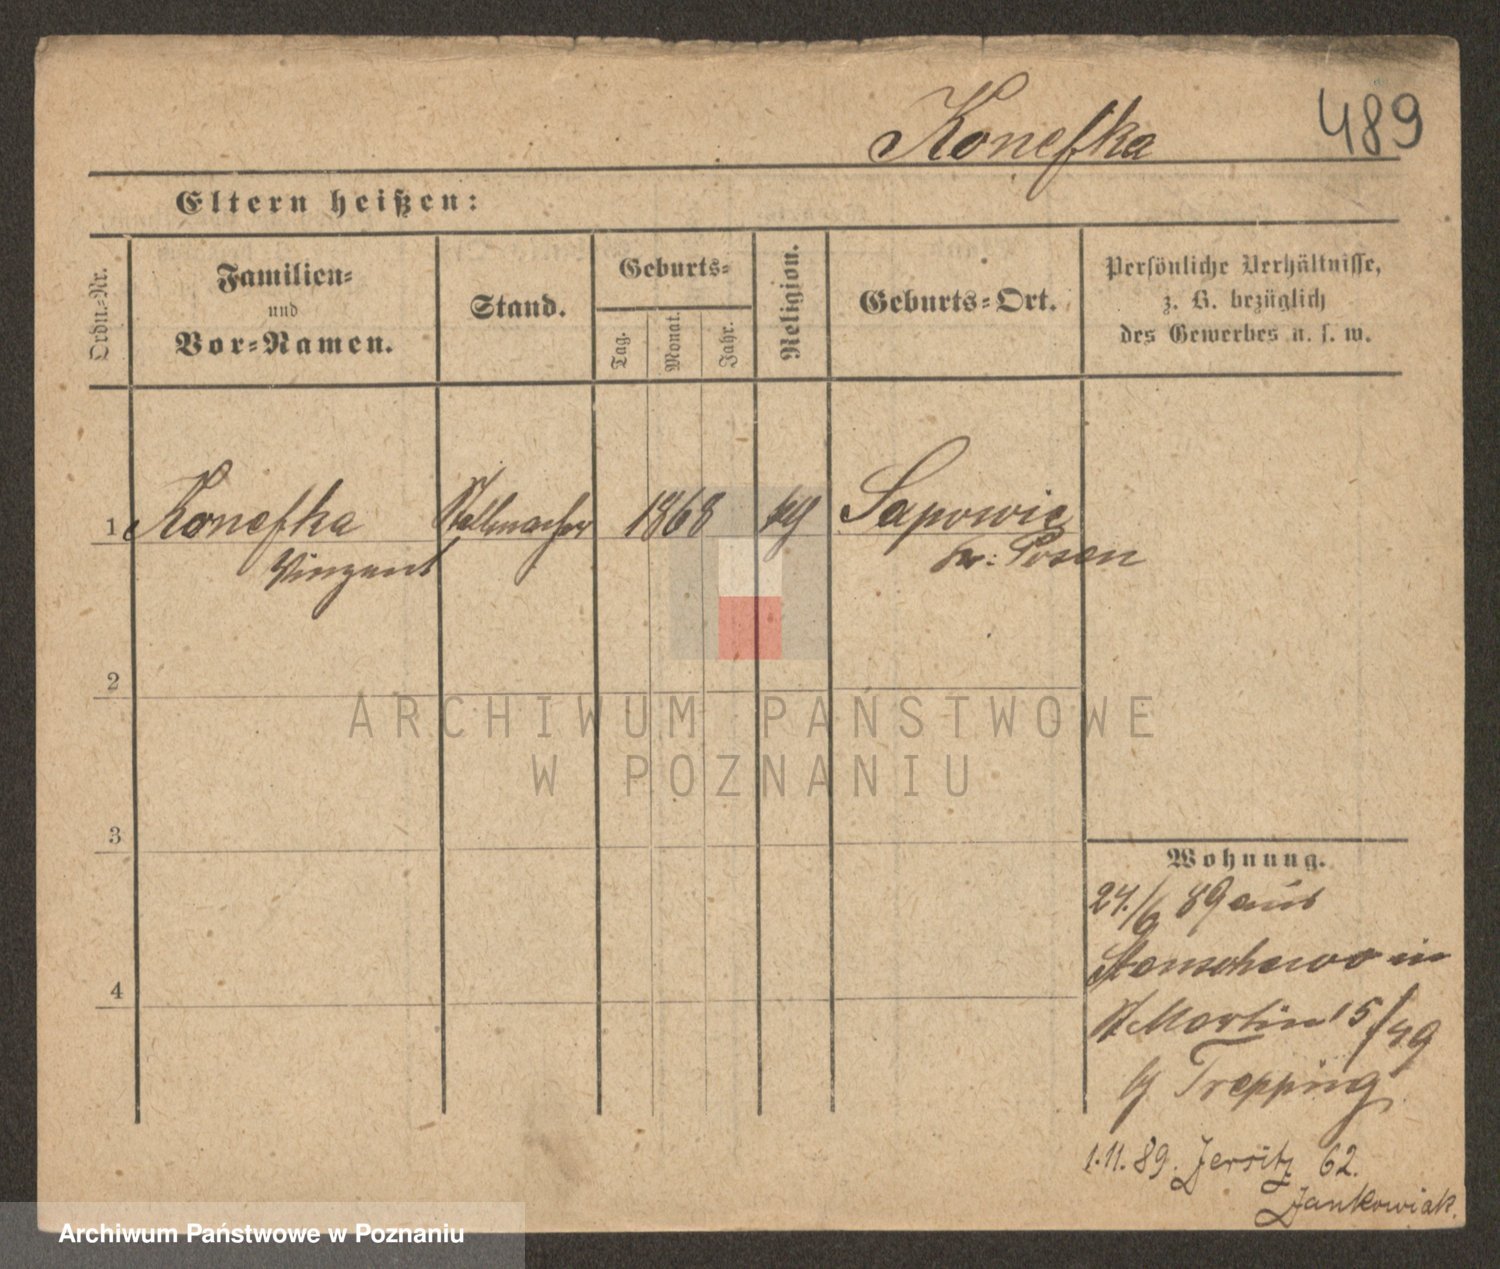 Konefka 489
Eltern heißen:
Ordn.-Nr.
Familien-
und
Vor-Namen.
Stand.
Geburts-
Tag.
Monat.
Jahr.
Religion.
Geburts-Ort.
Persönliche Verhältnisse,
z. B. bezüglich
des Gewerbes u. s. w.
1 Konefka Stellmacher 1868 kg Sapowic
Vinzent kr: Posen
2
ARCHIWUM PAŃSTWOWE
W POZNANIU
3
Wohnung.
24./6 89 aus
in
4
St Martin 15/49
by Trepping
1.11.89. Jersitz 62.
Jankowiak.
Archiwum Państwowe w Poznaniu